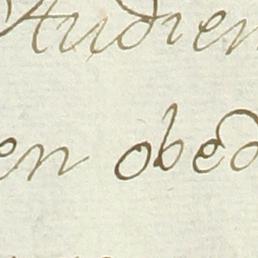 Audien
en obed